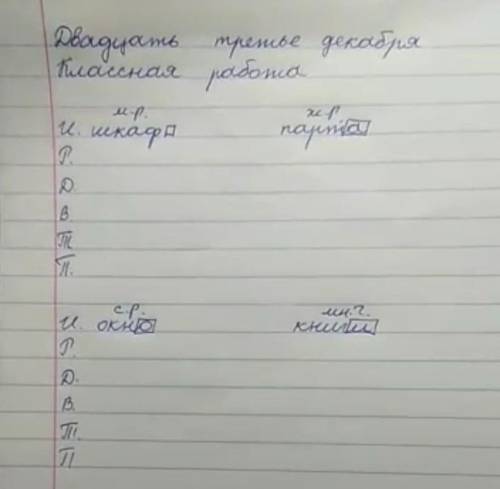 Двадцать третье декабря
Классная работа
м.р. ж.р
И. шкаф парта
Р.
Д.
В.
Т
П.
с.р. мн.ч.
И. окно книги
Р.
Д.
В.
Т.
П